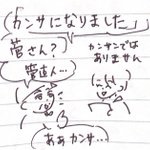 「カンサになりました」
菅さん?
菅直人…
カンサンでは
ありません
ああカンサ…